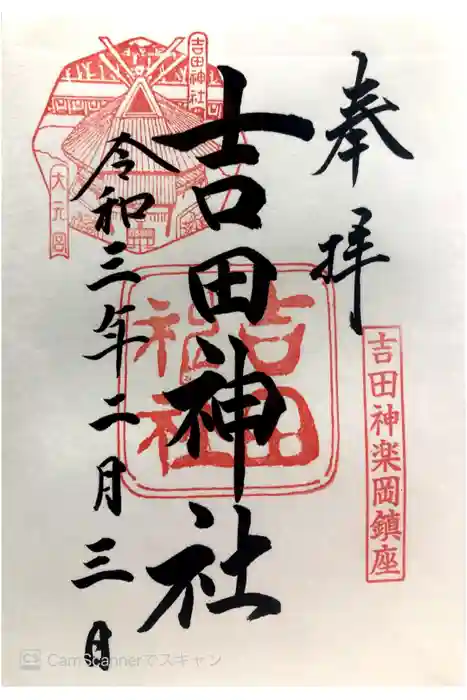 奉拝
吉田神楽岡鎮座
吉田神社
吉田神社
吉田神社
大元宮
令和三年二月三日
CS CamScannerでスキャン